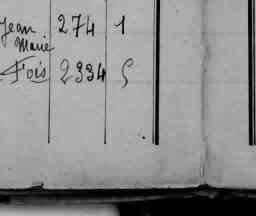 Jean 274 1
Marie
Fois 2334 5